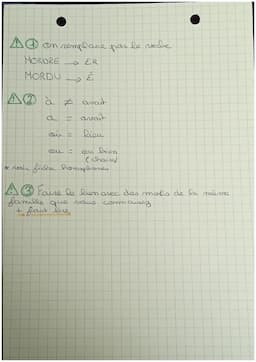 ⚠ ① on remplace par le verbe
MORDRE → ER
MORDU → É
⚠ ② à ≠ avait
a = avait
où = lieu
ou = ou bien
(choix)
* voir fiche homophones
⚠ ③ Faire le lien avec des mots de la même
famille que vous connaissez
+ faut lire